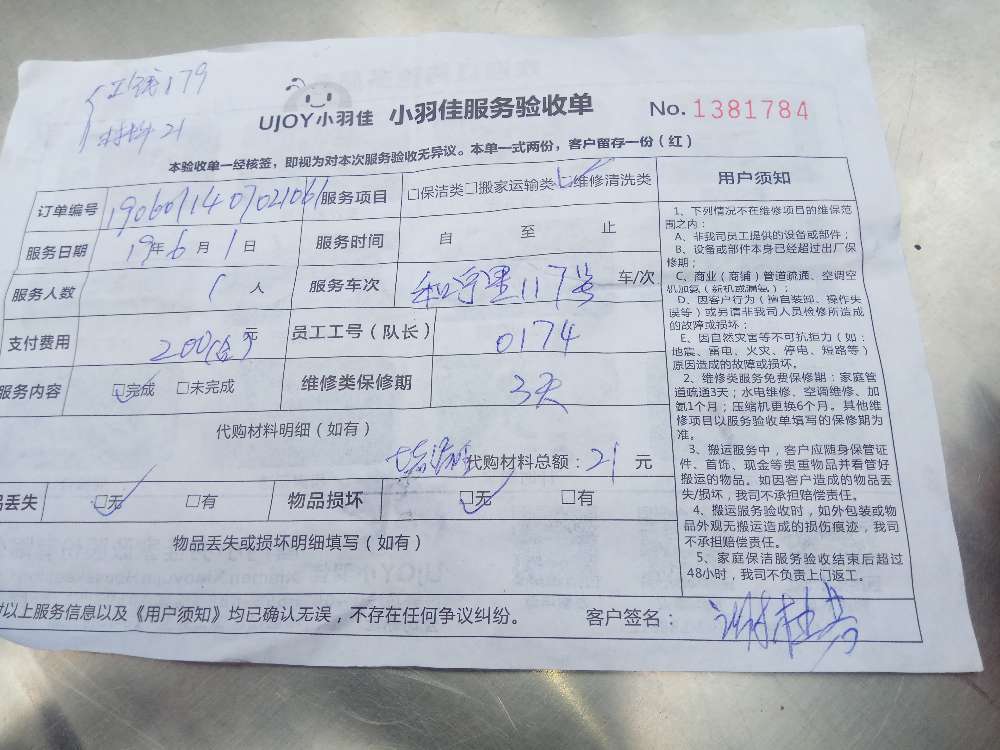 工钱179
材料21
UJOY小羽佳 小羽佳服务验收单 No.1381784
本验收单一经核签，即视为对本次服务验收无异议。本单一式两份，客户留存一份（红）
订单编号 服务项目 □保洁类□搬家运输类□维修清洗类
服务日期 19年6月1日 服务时间 自 至 止
服务人数 1人 服务车次 117号 车/次
支付费用 200 元 员工工号（队长） 0174
服务内容 □完成 □未完成 维修类保修期 3天
代购材料明细（如有）
代购材料总额：21 元
品丢失 □无 □有 物品损坏 □无 □有
物品丢失或损坏明细填写（如有）
对以上服务信息以及《用户须知》均已确认无误，不存在任何争议纠纷。 客户签名：
用户须知
1、下列情况不在维修项目的维保范
围之内：
A、非我司员工提供的设备或部件；
B、设备或部件本身已经超过出厂保
修期；
C、商业（商铺）管道疏通、空调空
机加氨（新机或漏氨）；
D、因客户行为（擅自装卸、操作失
误等）或另请非我司人员检修所造成
的故障或损坏；
E、因自然灾害等不可抗拒力（如：
地震、雷电、火灾、停电、短路等）
原因造成的故障或损坏。
2、维修类服务免费保修期：家庭管
道疏通3天；水电维修、空调维修、加
氨1个月；压缩机更换6个月。其他维
修项目以服务验收单填写的保修期为
准。
3、搬运服务中，客户应随身保管证
件、首饰、现金等贵重物品并看管好
搬运的物品。如因客户造成的物品丢
失/损坏，我司不承担赔偿责任。
4、搬运服务验收时，如外包装或物
品外观无搬运造成的损伤痕迹，我司
不承担赔偿责任。
5、家庭保洁服务验收结束后超过
48小时，我司不负责上门返工。